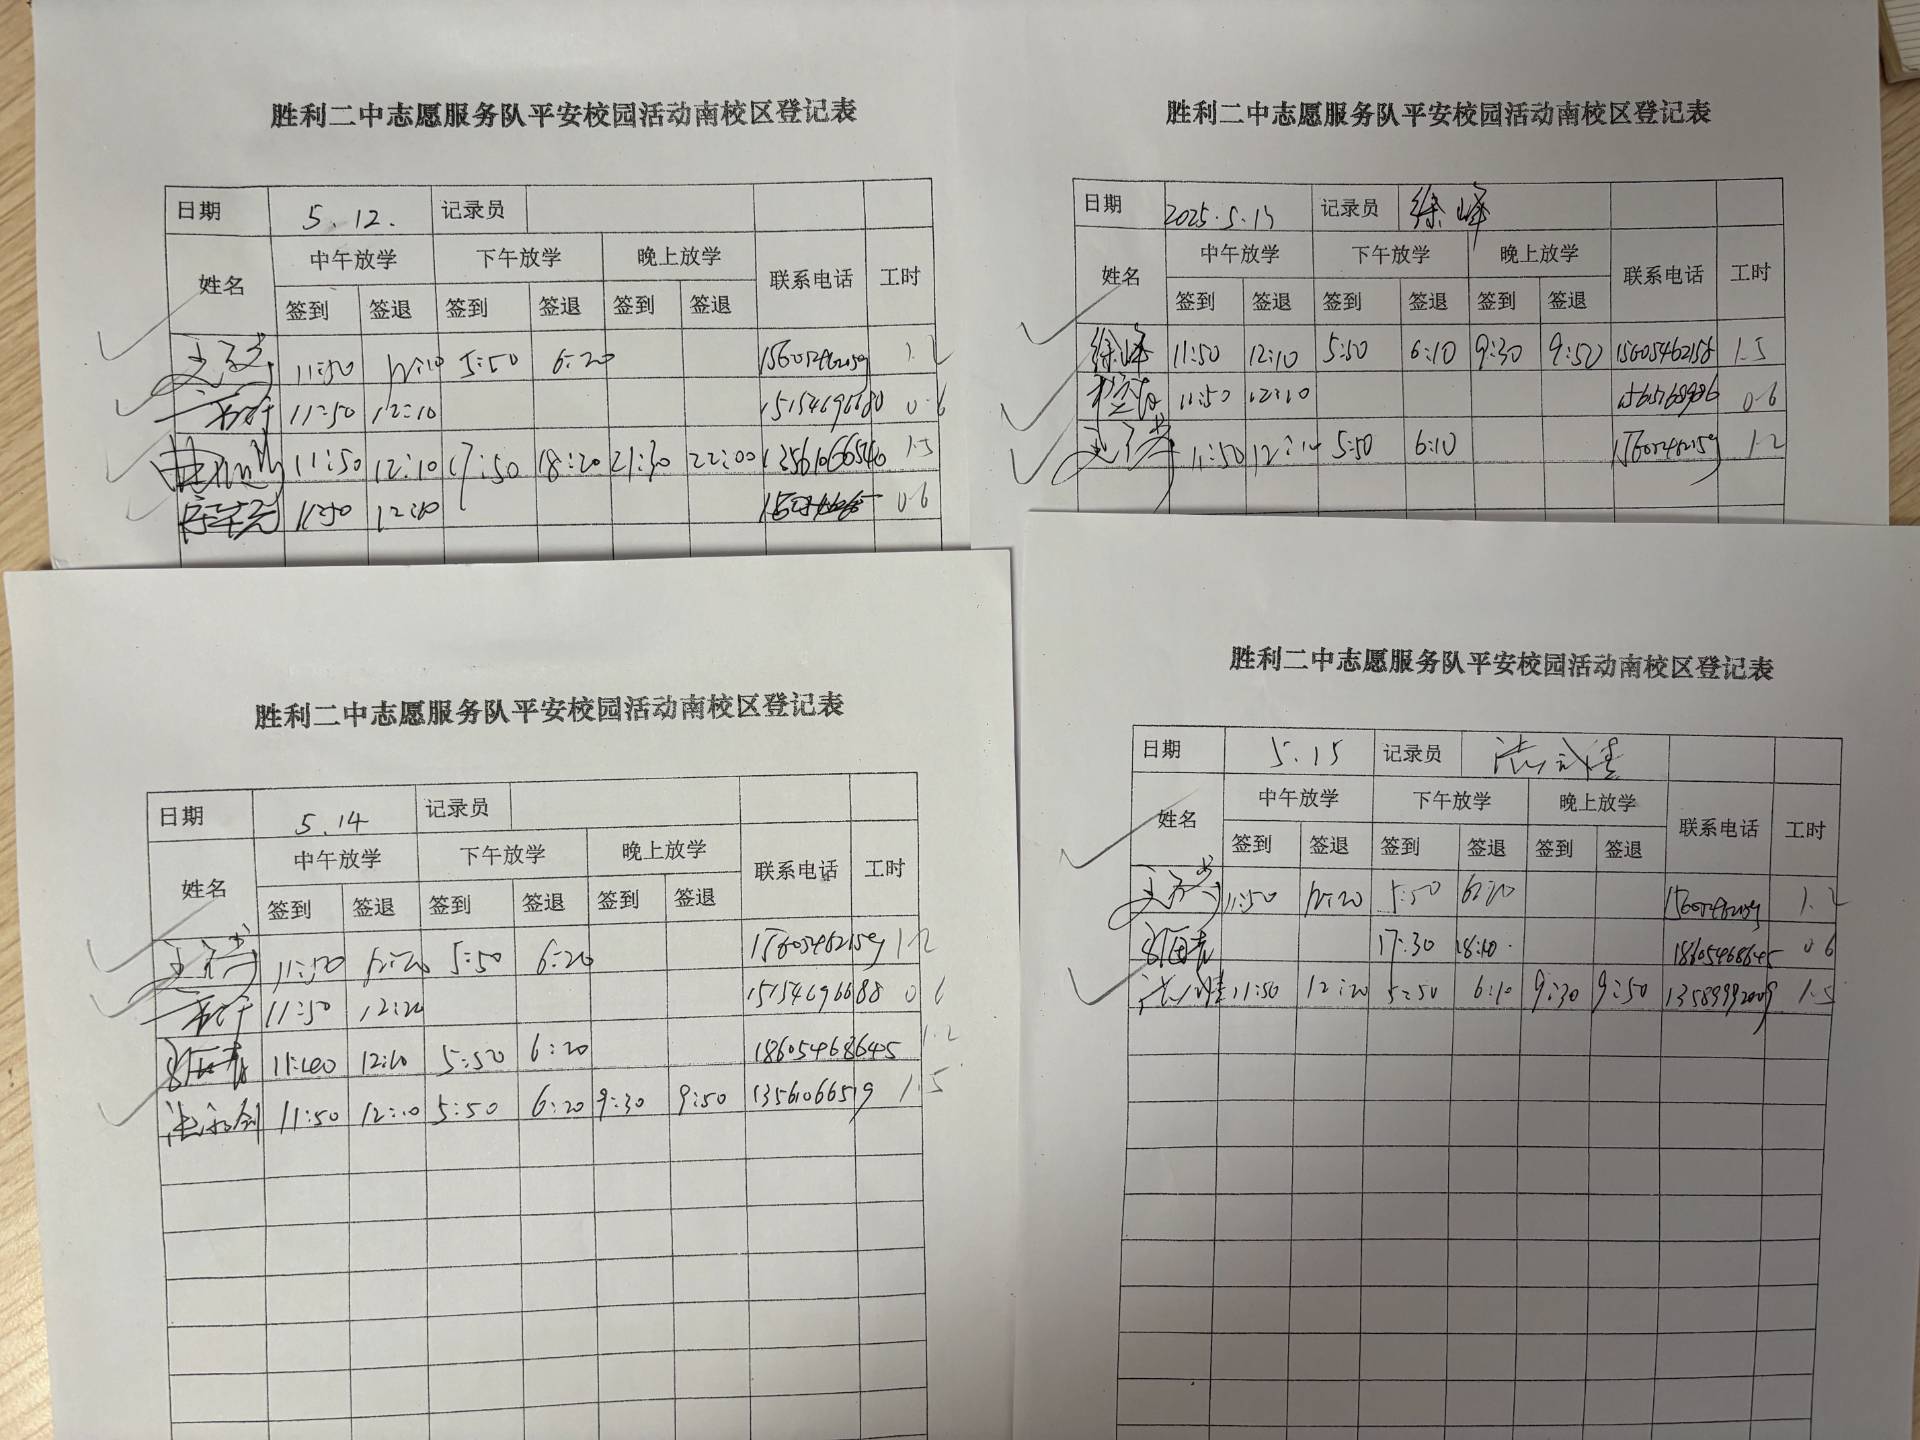 胜利二中志愿服务队平安校园活动南校区登记表
日期 5.12. 记录员
姓名 中午放学 下午放学 晚上放学 联系电话 工时
签到 签退 签到 签退 签到 签退
11:50 12:10 5:50 6:20 15605462159 1.2
11:50 12:10 0.6
11:50 12:10 17:50 18:20 21:30 22:00 1.5
11:50 12:10 0.6
胜利二中志愿服务队平安校园活动南校区登记表
日期 2025.5.13 记录员 徐峰
姓名 中午放学 下午放学 晚上放学 联系电话 工时
签到 签退 签到 签退 签到 签退
徐峰 11:50 12:10 5:50 6:10 9:30 9:50 15605462158 1.5
11:50 12:10 0.6
11:50 12:10 5:50 6:10 15605462159 1.2
胜利二中志愿服务队平安校园活动南校区登记表
日期 5.14 记录员
姓名 中午放学 下午放学 晚上放学 联系电话 工时
签到 签退 签到 签退 签到 签退
11:50 12:20 5:50 6:20 15605462159 1.2
11:50 12:20 15154696688 0.6
11:40 12:10 5:50 6:20 18605468645 1.2
11:50 12:10 5:50 6:20 9:30 9:50 13561066519 1.5
胜利二中志愿服务队平安校园活动南校区登记表
日期 5.15 记录员
姓名 中午放学 下午放学 晚上放学 联系电话 工时
签到 签退 签到 签退 签到 签退
11:50 12:20 5:50 6:20 15605462159 1.2
17:30 18:10 18605468645 0.6
11:50 12:20 5:50 6:10 9:30 9:50 13589992009 1.5